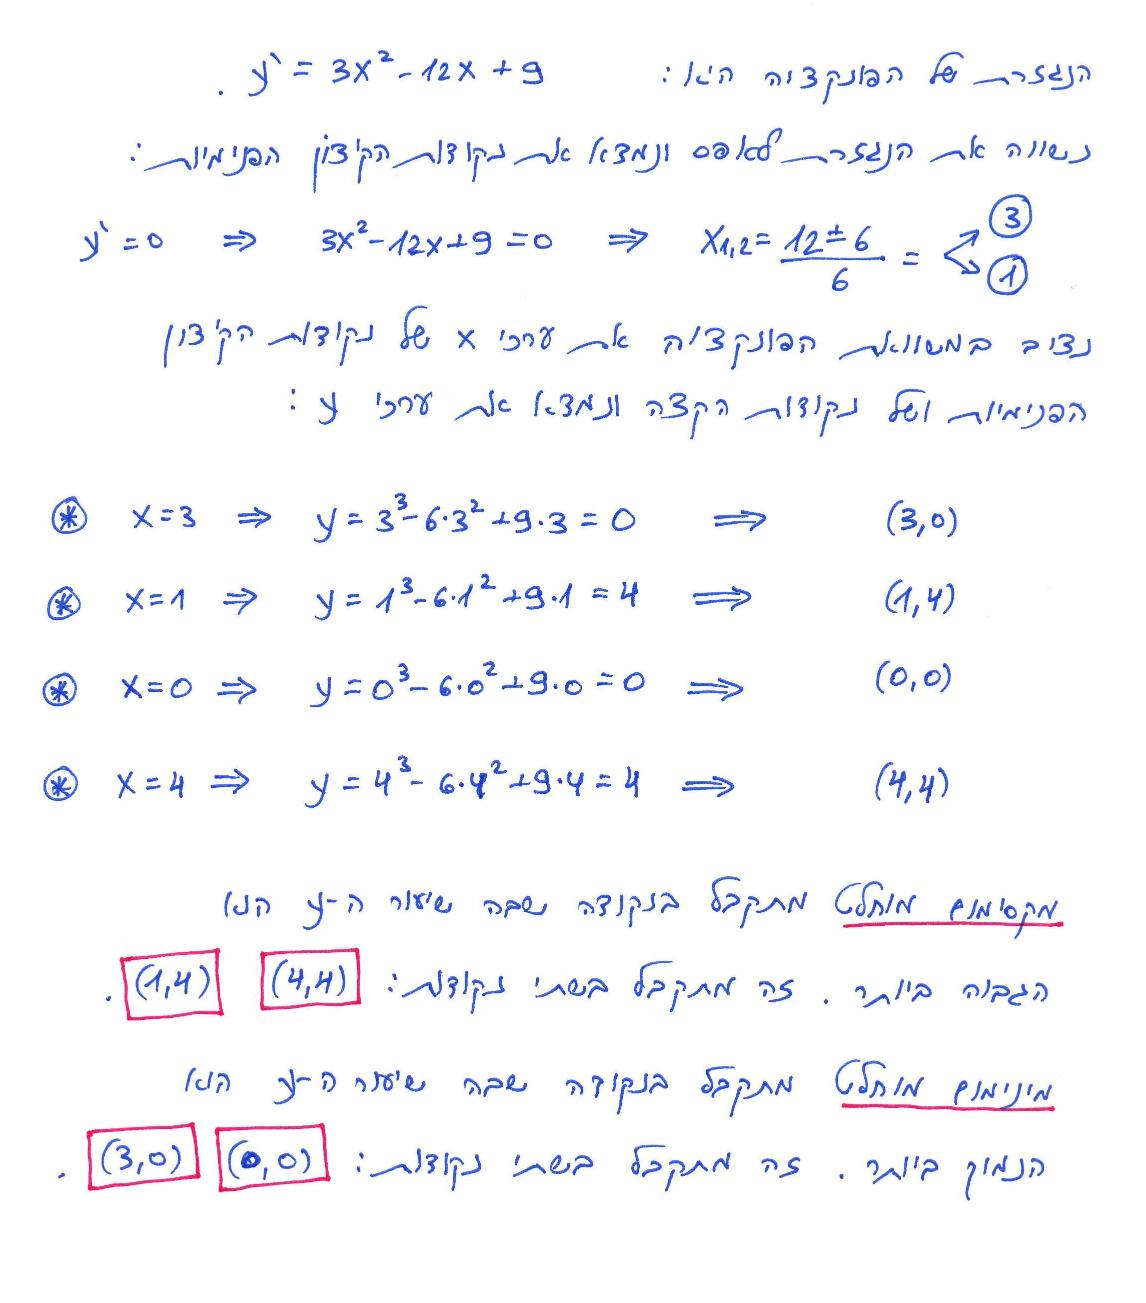 הנגזרת של הפונקציה היא: y` = 3x² - 12x + 9 .
נשווה את הנגזרת לאפס ונמצא את נקודות הקיצון הפנימיות:
y` = 0 ⇒ 3x² - 12x + 9 = 0 ⇒ x₁,₂ = (12 ± 6)/6 = 3, 1
נציב במשוואת הפונקציה את ערכי x של נקודות הקיצון
הפנימיות ושל נקודות הקצה ונמצא את ערכי y :
⊛ x=3 ⇒ y = 3³ - 6·3² + 9·3 = 0 ⇒ (3,0)
⊛ x=1 ⇒ y = 1³ - 6·1² + 9·1 = 4 ⇒ (1,4)
⊛ x=0 ⇒ y = 0³ - 6·0² + 9·0 = 0 ⇒ (0,0)
⊛ x=4 ⇒ y = 4³ - 6·4² + 9·4 = 4 ⇒ (4,4)
מקסימום מוחלט מתקבל בנקודה שבה שיעור ה-y הוא
הגבוה ביותר. זה מתקבל בשתי נקודות: (4,4) (1,4) .
מינימום מוחלט מתקבל בנקודה שבה שיעור ה-y הוא
הנמוך ביותר. זה מתקבל בשתי נקודות: (0,0) (3,0) .